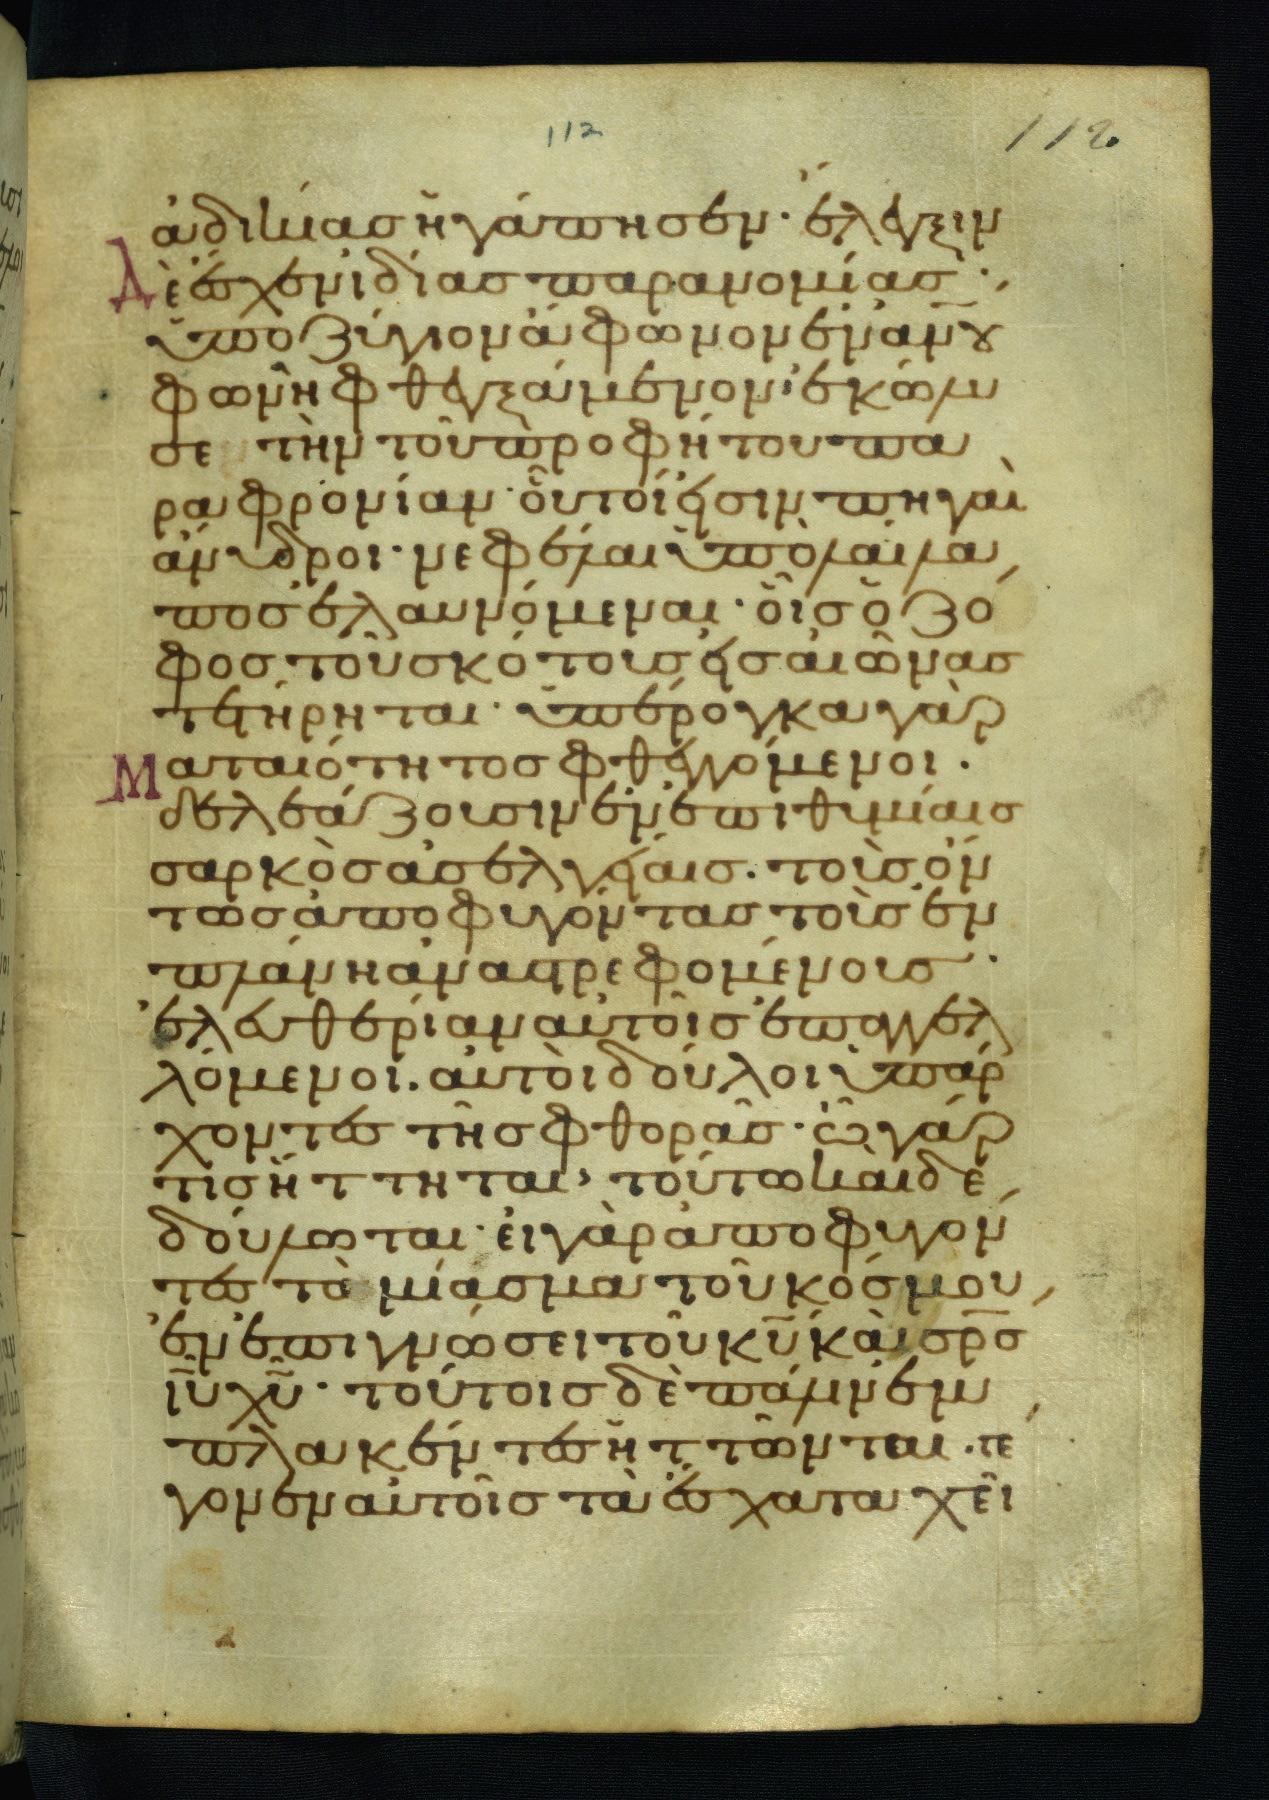 112 112
ἀδικίας ἠγάπησεν· ἔλεγξιν
Δὲ ἔσχεν ἰδίας παρανομίας·
ὑποζύγιον ἄφωνον ἐν ἀν̅ου
φωνῆ φθεγξάμενον· ἐκώλυ
σε τὴν τοῦ προφήτου πα
ραφρονίαν· οὗτοί εἰσιν πηγαὶ
ἄνυδροι· νεφέλαι ὑπὸ λαίλα
ποσ ἐλαυνόμεναι· οἷς ὁ ζό
φος τοῦ σκότους εἰς αἰῶνας
τετήρηται· ὑπέρογκα γὰρ
Ματαιότητος φθεγγόμενοι·
δελεάζουσιν ἐν ἐπιθυμίαις
σαρκὸς ἀσελγείαις· τοὺς ὄν
τως ἀποφυγόντας τοὺς ἐν
πλάνη ἀναστρεφομένους·
ἐλευθερίαν αὐτοῖς ἐπαγγελ
λόμενοι· αὐτοὶ δοῦλοι ὑπάρ
χοντες τῆς φθορᾶς· ὧ γάρ
τις ἥττηται, τούτω καὶ δε
δούλωται· εἰ γὰρ ἀποφυγόν
τες τὰ μιάσματα τοῦ κόσμου
ἐν ἐπιγνώσει τοῦ κ̅υ̅ καὶ σρ̅ς
ἰ̅υ̅ χ̅υ̅· τούτοις δὲ πάλιν ἐμ
πλακέντες ἡττῶνται· γε
γονεν αὐτοῖς τὰ ἔσχατα χεί